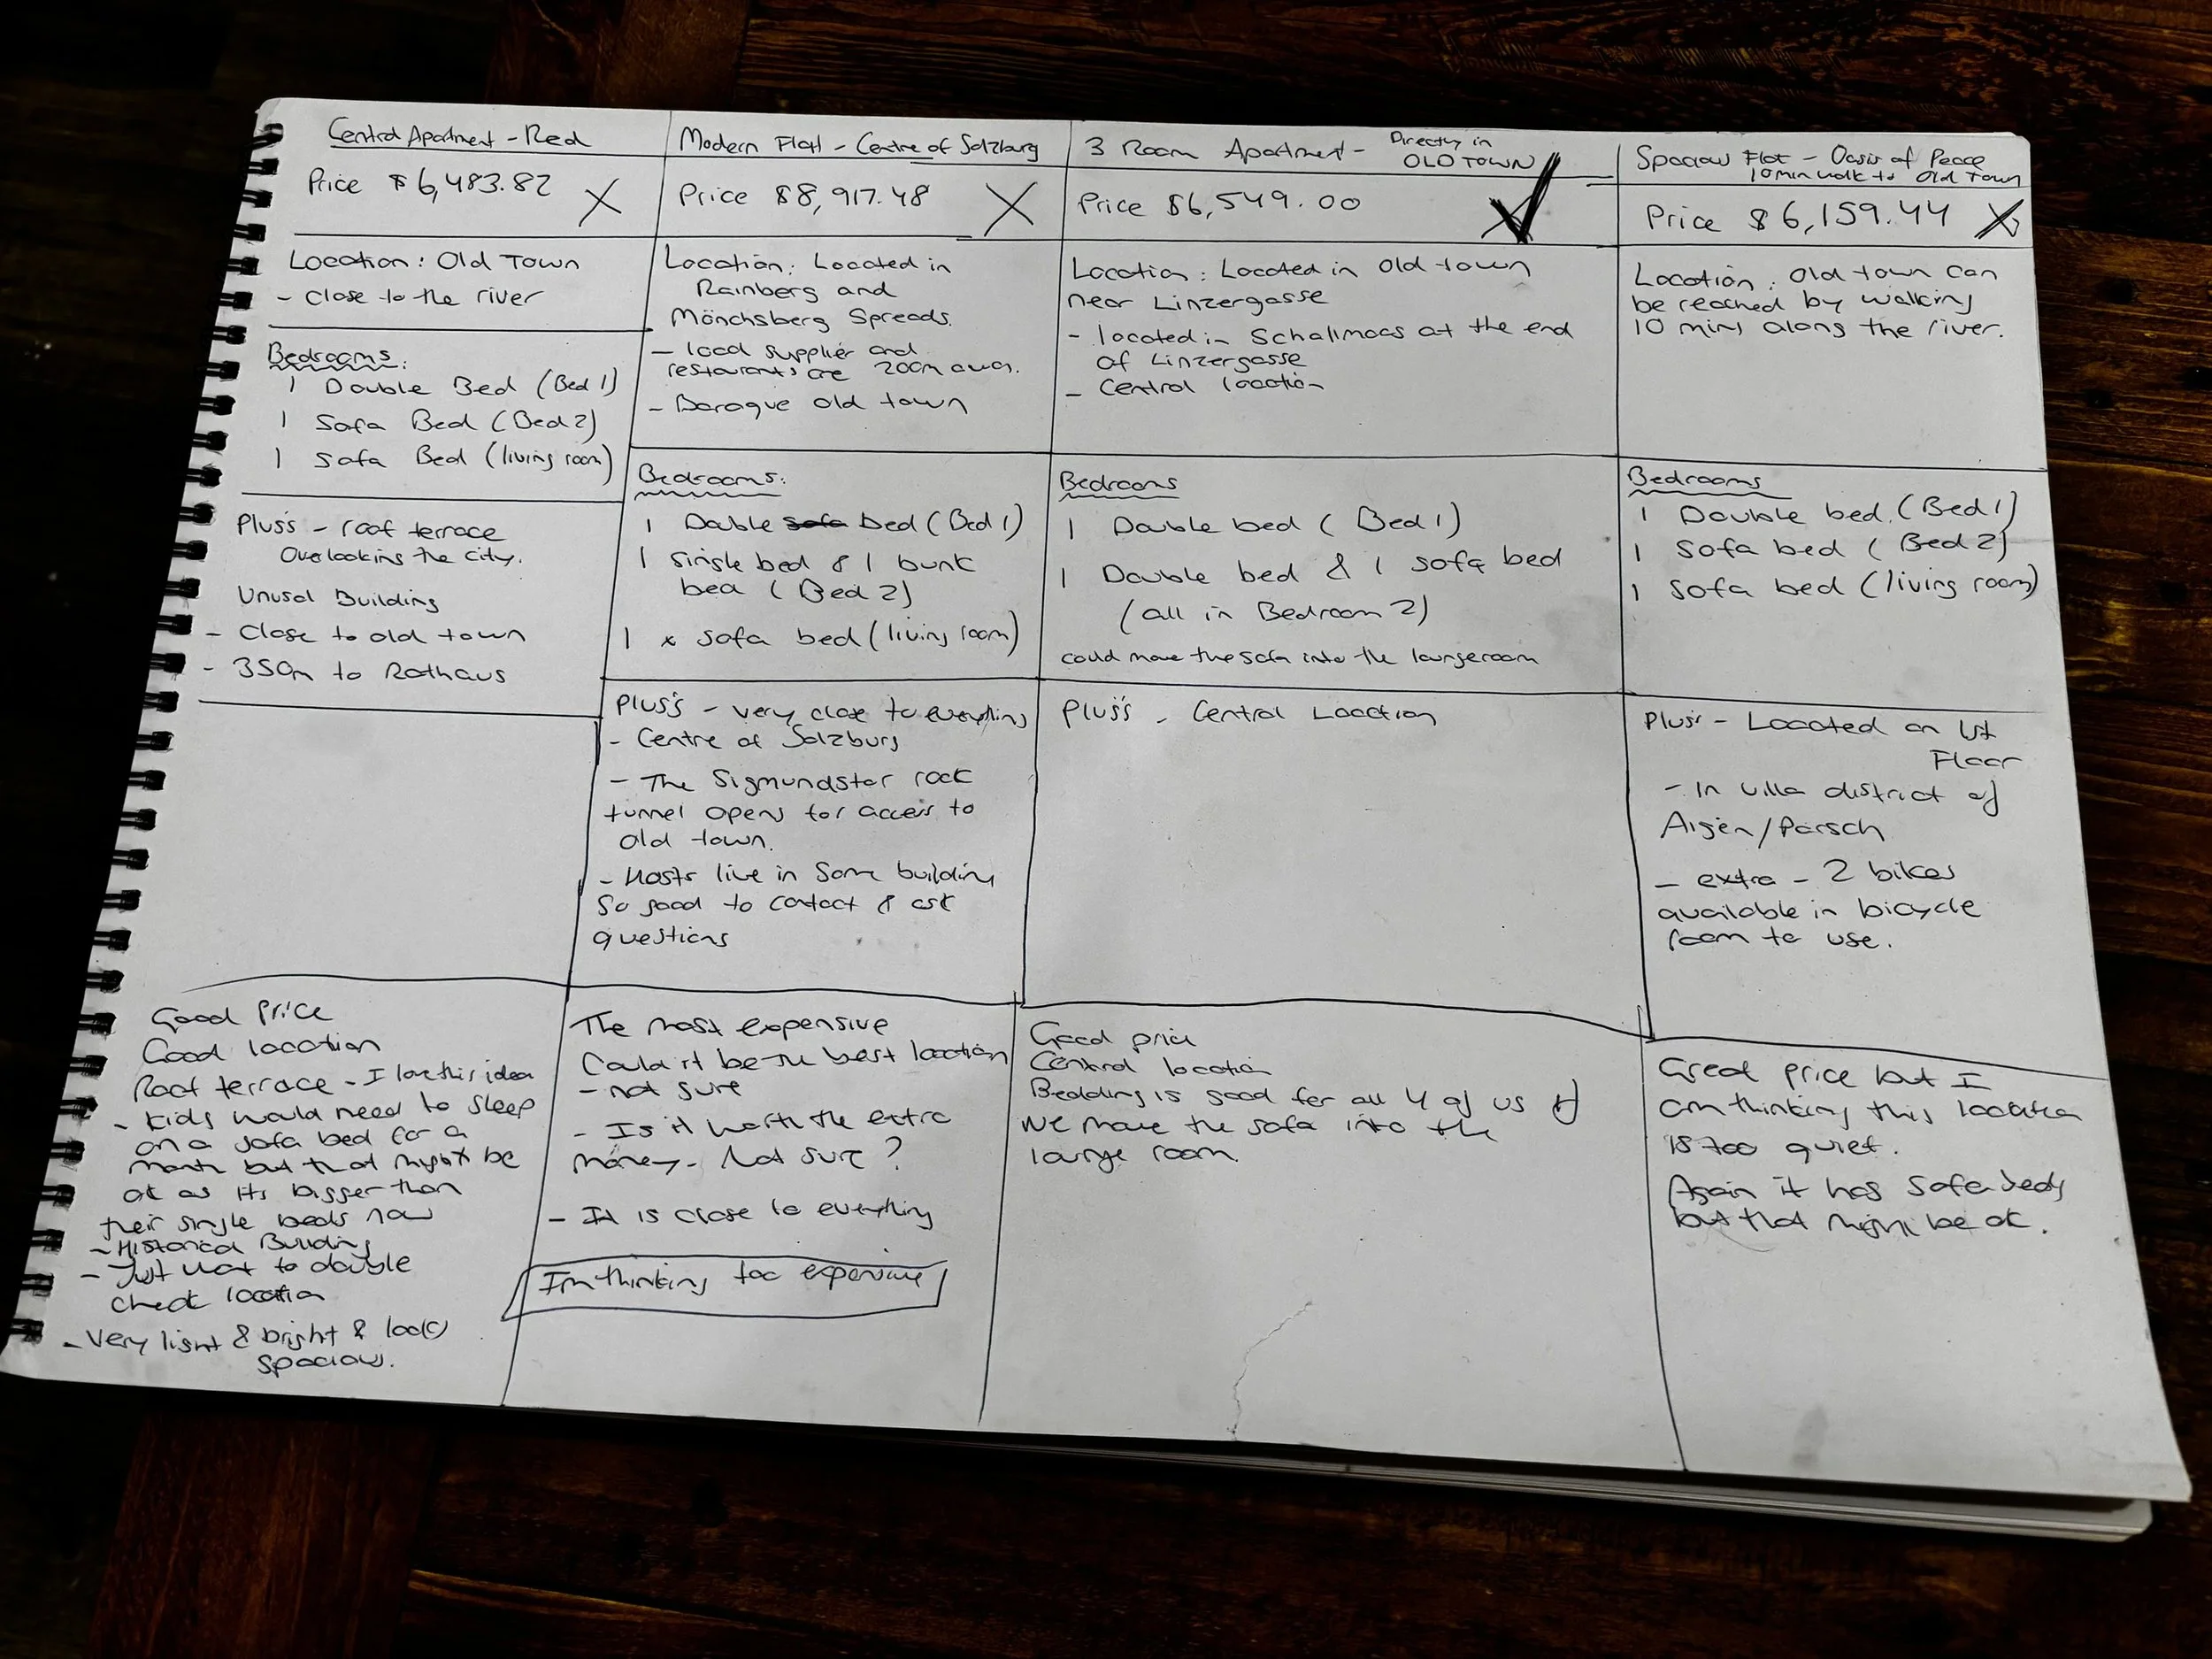 Central Apartment - Red
Price $6,483.82 X
Location: Old Town
- Close to the river
Bedrooms:
1 Double Bed (Bed 1)
1 Sofa Bed (Bed 2)
1 Sofa Bed (living room)
Plus's - roof terrace
Overlooking the city.
Unusal Building
- Close to old town
- 350m to Rathaus
Good Price
Good location
Roof terrace - I love this idea
- Kids would need to sleep
on a sofa bed for a
month but that might be
ok as its bigger than
their single beds now
- Historical Building
- Just want to double
check location
- Very light & bright & looks
spacious.
Modern Flat - Centre of Salzburg
Price $8,917.48 X
Location: Located in
Rainberg and
Mönchsberg Spreads.
- local supplier and
restaurants are 200m away.
- Baroque old town
Bedrooms:
1 Double sofa bed (Bed 1)
1 single bed & 1 bunk
bed (Bed 2)
1 x sofa bed (living room)
Plus's - very close to everything
- Centre of Salzburg
- The Sigmundstor rock
tunnel opens for access to
old town.
- Hosts live in same building
so good to contact & ask
questions
The most expensive
Could it be the best location
- not sure
- Is it worth the extra
money - Not sure?
- It is close to everything
I'm thinking too expensive
3 Room Apartment - Directly in
OLD TOWN
Price $6,549.00
Location: Located in Old town
near Linzergasse
- located in Schallmoos at the end
of Linzergasse
- Central location
Bedrooms
1 Double bed (Bed 1)
1 Double bed & 1 sofa bed
(all in Bedroom 2)
could move the sofa into the loungeroom
Plus's - Central Location
Good price
Central location
Bedding is good for all 4 of us if
we move the sofa into the
lounge room.
Spacious Flat - Oasis of Peace
10 min walk to Old Town
Price $6,159.44 X
Location: Old town can
be reached by walking
10 mins along the river.
Bedrooms
1 Double bed. (Bed 1)
1 Sofa bed (Bed 2)
1 Sofa bed (living room)
Plus's - Located on 1st
Floor
- In villa district of
Aigen/Parsch
- extra - 2 bikes
available in bicycle
room to use.
Great price but I
am thinking this location
is too quiet.
Again it has sofa beds
but that might be ok.